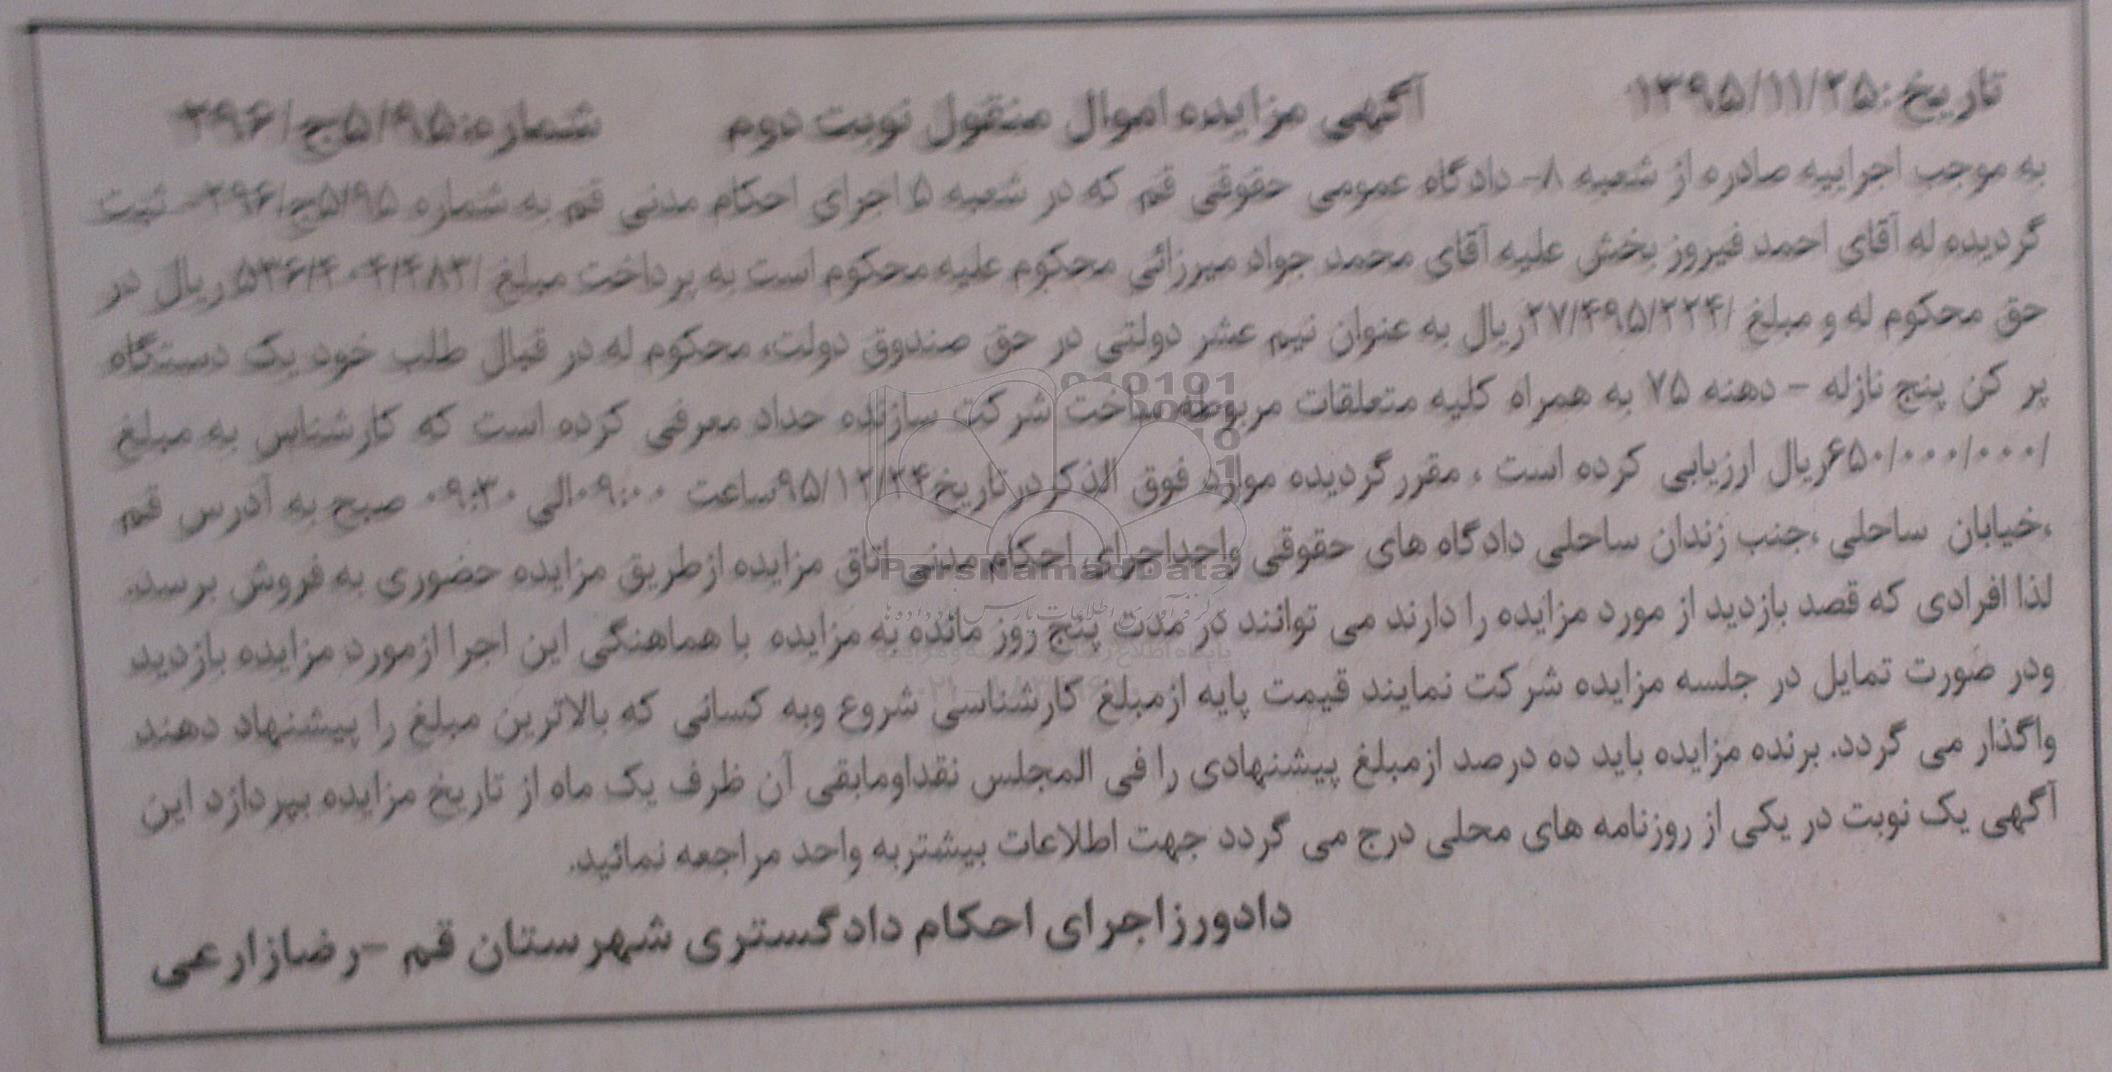 تاریخ:۱۳۹۵/۱۱/۲۵ آگهی مزایده اموال منقول نوبت دوم شماره:۵/۹۵ج/۳۹۶
به موجب اجراییه صادره از شعبه ۸- دادگاه عمومی حقوقی قم که در شعبه ۵ اجرای احکام مدنی قم به شماره ۵/۹۵ج/۳۹۶- ثبت
گردیده له آقای احمد فیروز بخش علیه آقای محمد جواد میرزائی محکوم علیه محکوم است به پرداخت مبلغ ریال در
حق محکوم له و مبلغ /۲۷/۴۹۵/۲۲۴ریال به عنوان نیم عشر دولتی در حق صندوق دولت، محکوم له در قبال طلب خود یک دستگاه
پر کن پنج نازله - دهنه ۷۵ به همراه کلیه متعلقات مربوطه ساخت شرکت سازنده حداد معرفی کرده است که کارشناس به مبلغ
/۶۵۰/۰۰۰/۰۰۰ریال ارزیابی کرده است ، مقررگردیده موارد فوق الذکردرتاریخ۹۵/۱۲/۲۴ساعت ۰۹:۰۰الی ۰۹:۳۰ صبح به آدرس قم
،خیابان ساحلی ،جنب زندان ساحلی دادگاه های حقوقی واحداجرای احکام مدنی اتاق مزایده ازطریق مزایده حضوری به فروش برسد.
لذا افرادی که قصد بازدید از مورد مزایده را دارند می توانند در مدت پنج روز مانده به مزایده با هماهنگی این اجرا ازمورد مزایده بازدید
ودر صورت تمایل در جلسه مزایده شرکت نمایند قیمت پایه ازمبلغ کارشناسی شروع وبه کسانی که بالاترین مبلغ را پیشنهاد دهند
واگذار می گردد. برنده مزایده باید ده درصد ازمبلغ پیشنهادی را فی المجلس نقداومابقی آن ظرف یک ماه از تاریخ مزایده بپردازد این
آگهی یک نوبت در یکی از روزنامه های محلی درج می گردد جهت اطلاعات بیشتربه واحد مراجعه نمائید.
دادورزاجرای احکام دادگستری شهرستان قم -رضازارعی
ParsNamadData